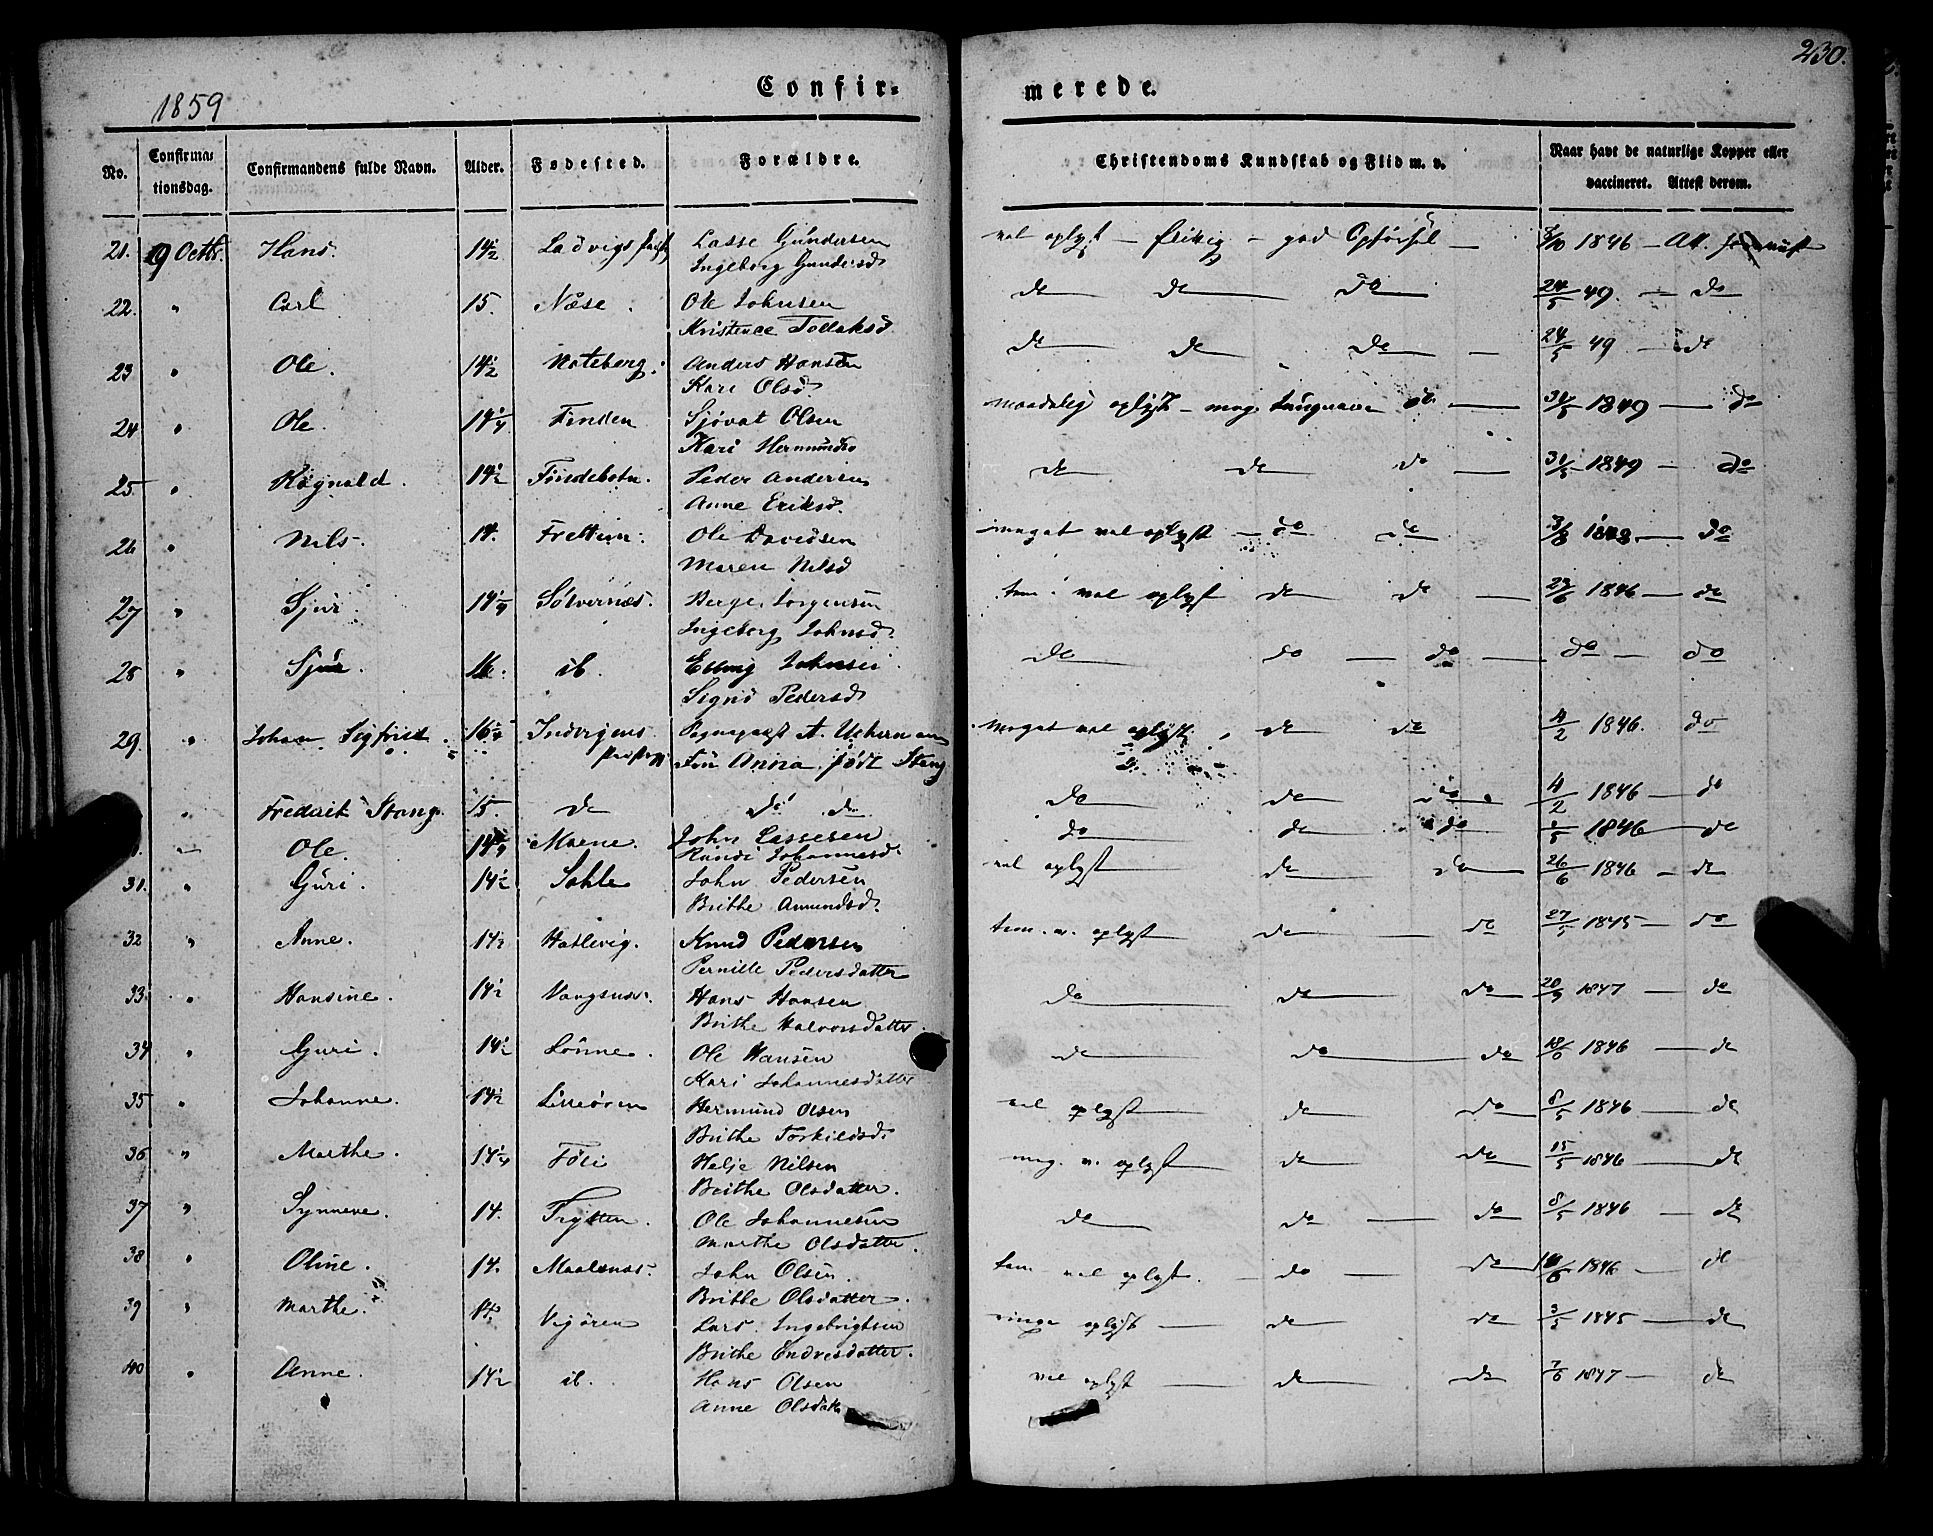 230.
1859
Confir-
merede.
No.
Confirma-
tionsdag.
Confirmandens fulde Navn.
Alder.
Fødested.
Forældre.
Christendoms Kundskab og Flid m. v.
Naar havt de naturlige Kopper eller
vaccineret. Attest derom.
21. 9 Octbr. Hans. 14½ Ladvigs Lasse Gundersen vel oplyst — flittig — god Opførsel — 1846 — Att.
Ingeborg Gundersd
22. " Carl 15. Næse. Ole Johnsen do do do 24/5 49. — do
Kristence Tollaksd
23 " Ole. 14½ Nateberg. Anders Hansen do do do — 24/5 49 — do
Kari Olsd.
24 " Ole. 14¼ Finden Sjøvat Olsen maadelig oplyst — do — 1849 — do
Kari Hermundsd
25 " Ragnald. 14½ Findebotn. Peder Andersen do do do — 31/5 1849 — do
Anne Eriksd.
26 " Nils. 14. Frettem. Ole Davidsen meget vel oplyst — do do 3/8 — do
Maren Nilsd
27 " Sjur. 14¼ Sølvernes. Berge Jørgensen tem. vel oplyst do do 1846 — do
Ingeborg Johnsd.
28 " Sjur. 16. ib. Johnsen. do do — do — do — do
Signi Pedersd
29. " Johan Sigfried. 16¼ Indvigens A. Uckermann meget vel oplyst. do do 4/2 1846. do
Fru Anna født Stang
" Frederik Stang. 15. do do do do do do 4/2 1846 — do
Ole. Maene. John Lassesen do do do 1846 — do
Randi Johannesd.
31. " Guri. 14½ Sahle John Pedersen vel oplyst do do 26/6 1846 — do
Brithe Amundsd.
32 " Anne. 14½ Hatlevig. Knud Pedersen tem. v. oplyst do do 27/5 1845 — do
Pernille Pedersdatter
33. " Hansine. 14½ Vangsnæs. Hans Hansen do do do 20/9 1847 — do
Brithe Halvorsdatter
34 " Guri. 14½ Lønne. Ole Hansen do do do 1846 — do
Kari Johannesdatter
35 " Johanne. 14½ Hermund Olsen vel oplyst do do 8/5 1846 — do
Brithe Torkildsd.
36 " Marthe. 14¼ Føli Helje Nilsen meg. v. oplyst do do 15/5 1846 — do
Brithe Olsdatter.
37 " Synneve. 14. Trytten. Ole Johannesen do do — do 8/5 1846 — do
Marthe Olsdatter.
38 " Oline. 14. Maalsnæs. John Olsen. tem vel oplyst. — do — do 1846 — do
Brithe Olsdatter.
39 " Marthe. Vigøren Lars Ingebrigtsen ringe oplyst — do do 1845 — do
Brithe Endresdatter.
40 " Anne. 14½ ib. Hans Olsen vel oplyst — do do 7/6 1847 — do
Anne Olsdatt